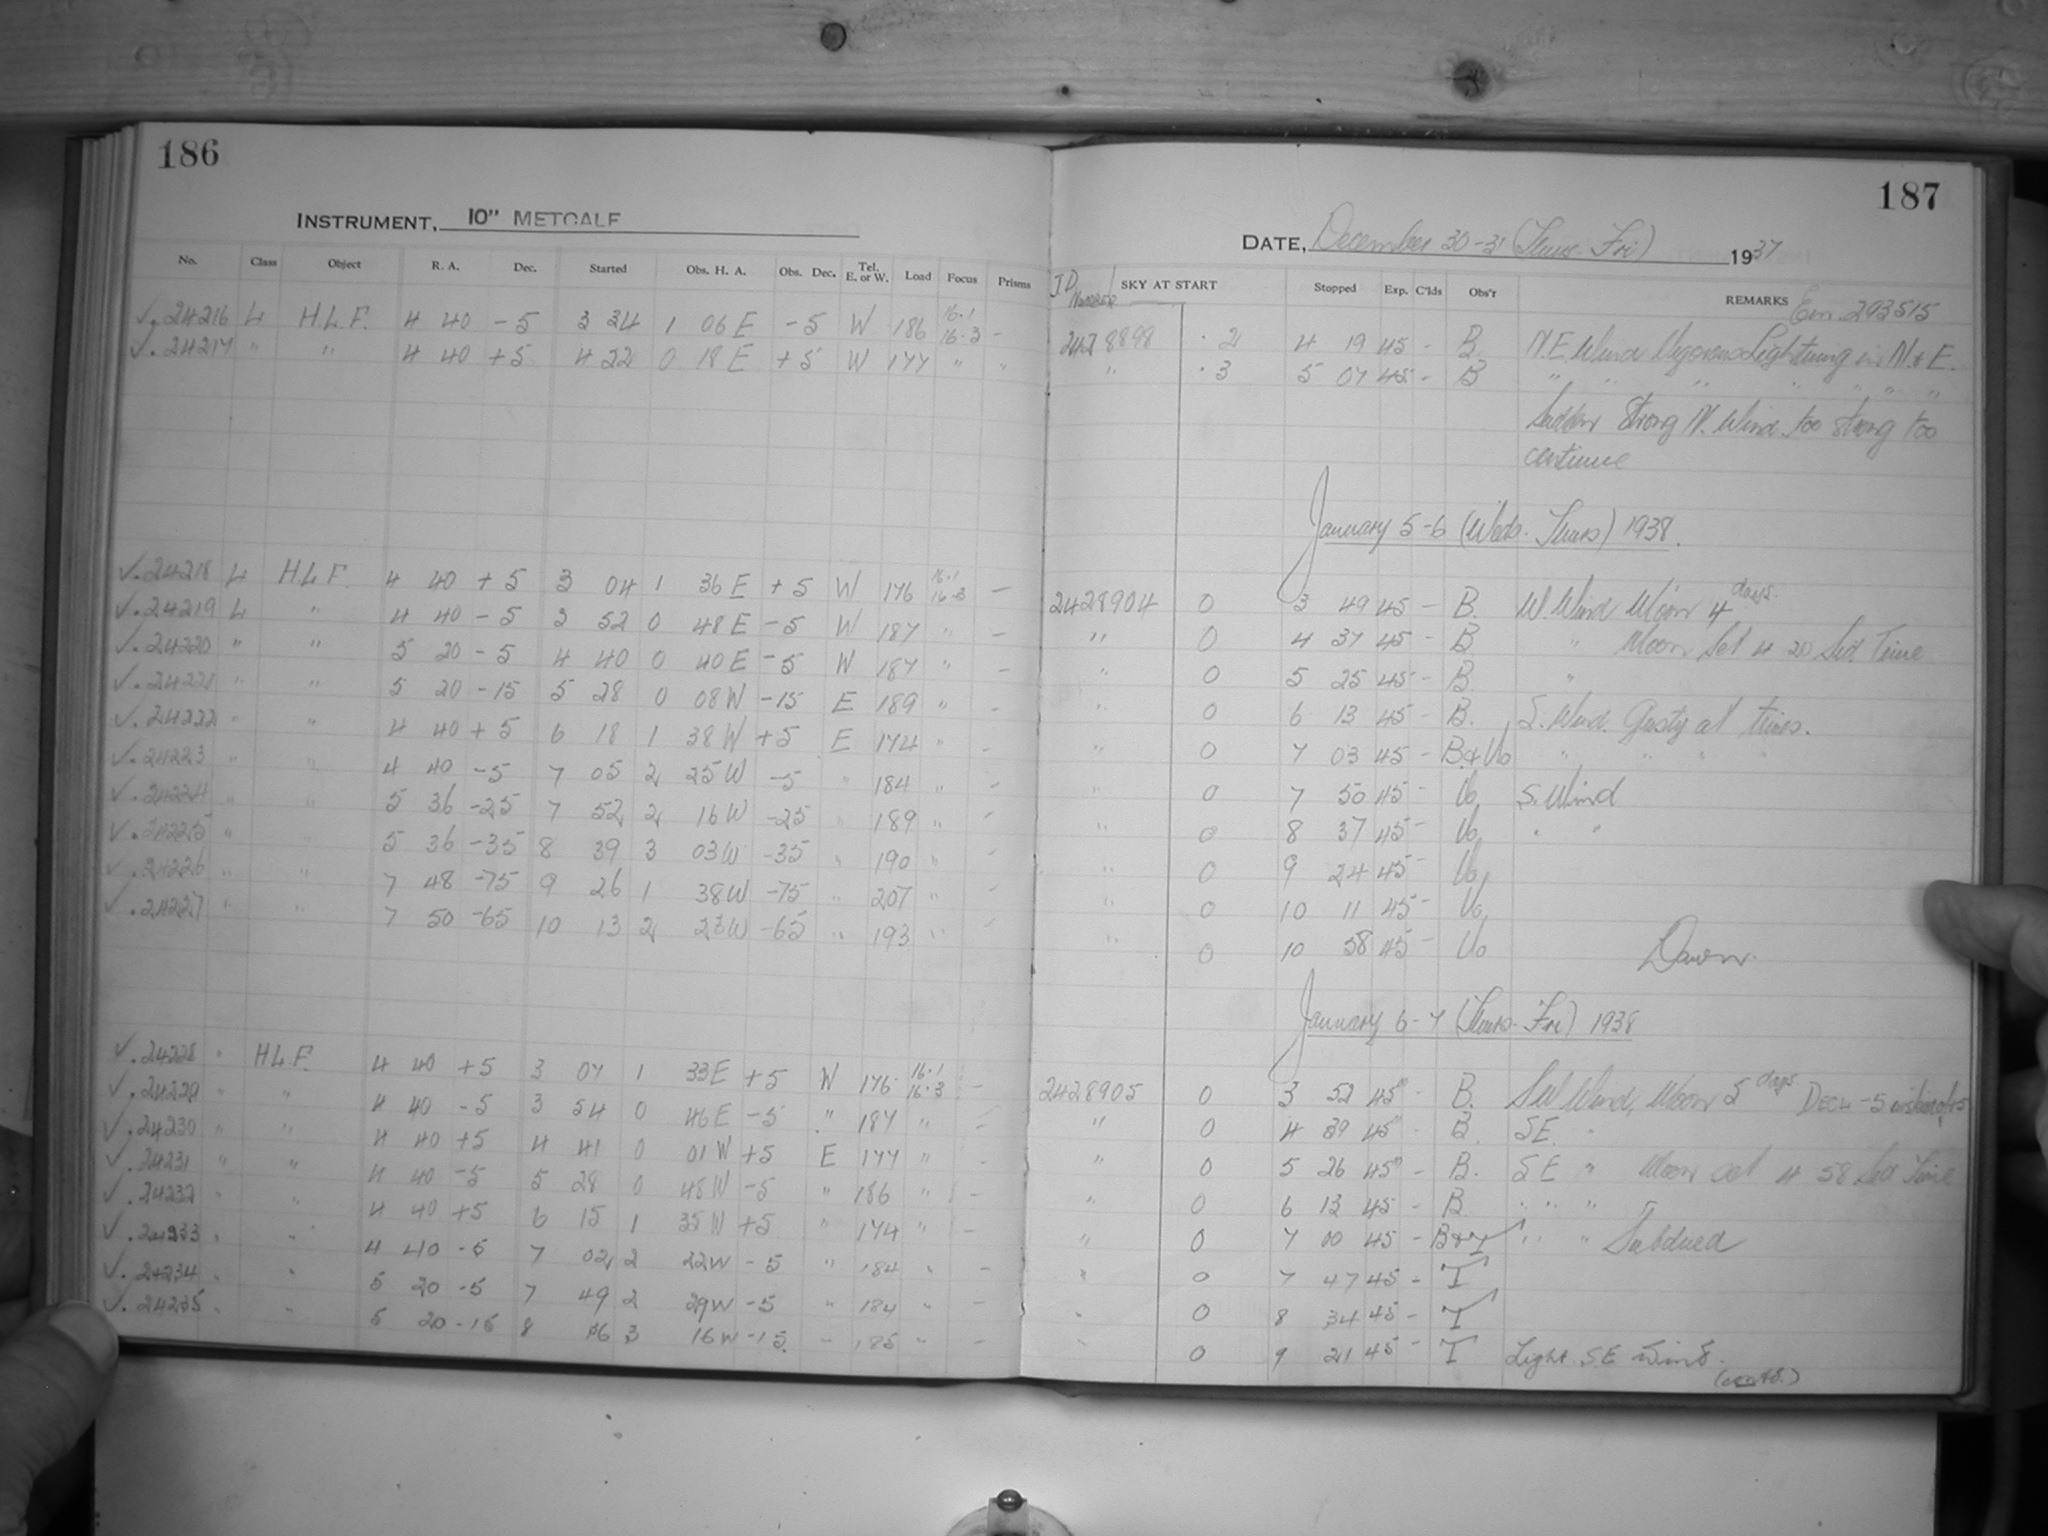 186
INSTRUMENT, 10" METCALF
No. Class Object R. A. Dec. Started Obs. H. A. Obs. Dec. Tel. E. or W. Load Focus Prisms
✓. 24216 L H.L.F. 4 40 -5 3 34 1 06 E -5 W 186 16.1 16.3 -
✓. 24217 " " 4 40 +5 4 22 0 18 E +5 W 177 " "
✓. 24218 L H L F. 4 40 +5 3 04 1 36 E +5 W 176 16.1 16.3 -
✓. 24219 L " 4 40 -5 3 52 0 48 E -5 W 187 " -
✓. 24220 " " 5 20 -5 4 40 0 40 E -5 W 187 " -
✓. 24221 " " 5 20 -15 5 28 0 08 W -15 E 189 " -
✓. 24222 " " 4 40 +5 6 18 1 38 W +5 E 174 " -
✓. 24223 " " 4 40 -5 7 05 2 25 W -5 " 184 " -
✓. 24224 " " 5 36 -25 7 52 2 16 W -25 " 189 " -
✓. 24225 " " 5 36 -35 8 39 3 03 W -35 " 190 " -
✓. 24226 " " 7 48 -75 9 26 1 38 W -75 " 207 " -
✓. 24227 " " 7 50 -65 10 13 2 23 W -65 " 193 " -
✓. 24228 " H L F. 4 40 +5 3 07 1 33 E +5 W 176 16.1 16.3 -
✓. 24229 " " 4 40 -5 3 54 0 46 E -5 " 187 " -
✓. 24230 " " 4 40 +5 4 41 0 01 W +5 E 177 " -
✓. 24231 " " 4 40 -5 5 28 0 48 W -5 " 186 " -
✓. 24232 " " 4 40 +5 6 15 1 35 W +5 " 174 " -
✓. 24233 " " 4 40 -5 7 02 2 22 W -5 " 184 " -
✓. 24234 " " 5 20 -5 7 49 2 29 W -5 " 184 " -
✓. 24235 " " 5 20 -15 8 36 3 16 W -15 " 185 " -
187
DATE, December 30-31 (Thurs. Fri) 1937
J.D. Number SKY AT START Stopped Exp. C'lds Obs'r REMARKS Em. 293515
2428898 .2 4 19 45 - B. N.E. Wind Vigorous Lightning in N. & E.
" .3 5 07 45 - B " " " " " "
Sudden strong N. Wind. too strong too
continue
January 5-6 (Weds. Thurs) 1938.
2428904 0 3 49 45 - B. W. Wind Moon 4 days.
" 0 4 37 45 - B " Moon Set 4 20 Sid Time
" 0 5 25 45 - B. "
" 0 6 13 45 - B. S. Wind. Gusty at times.
" 0 7 03 45 - B. & Vo " " " "
" 0 7 50 45 - Vo S. Wind
" 0 8 37 45 - Vo " "
" 0 9 24 45 - Vo
" 0 10 11 45 - Vo
" 0 10 58 45 - Vo Dawn.
January 6-7 (Thurs. Fri) 1938
2428905 0 3 52 45 - B. SW Wind, Moon 5 days Dec -5
" 0 4 39 45 - B. SE. "
" 0 5 26 45 - B. SE " Moon set 4 58 Sid Time
" 0 6 13 45 - B. " " "
" 0 7 00 45 - B & T " " " Subdued
" 0 7 47 45 - T
" 0 8 34 45 - T
" 0 9 21 45 - T Light S.E wind.
(contd.)